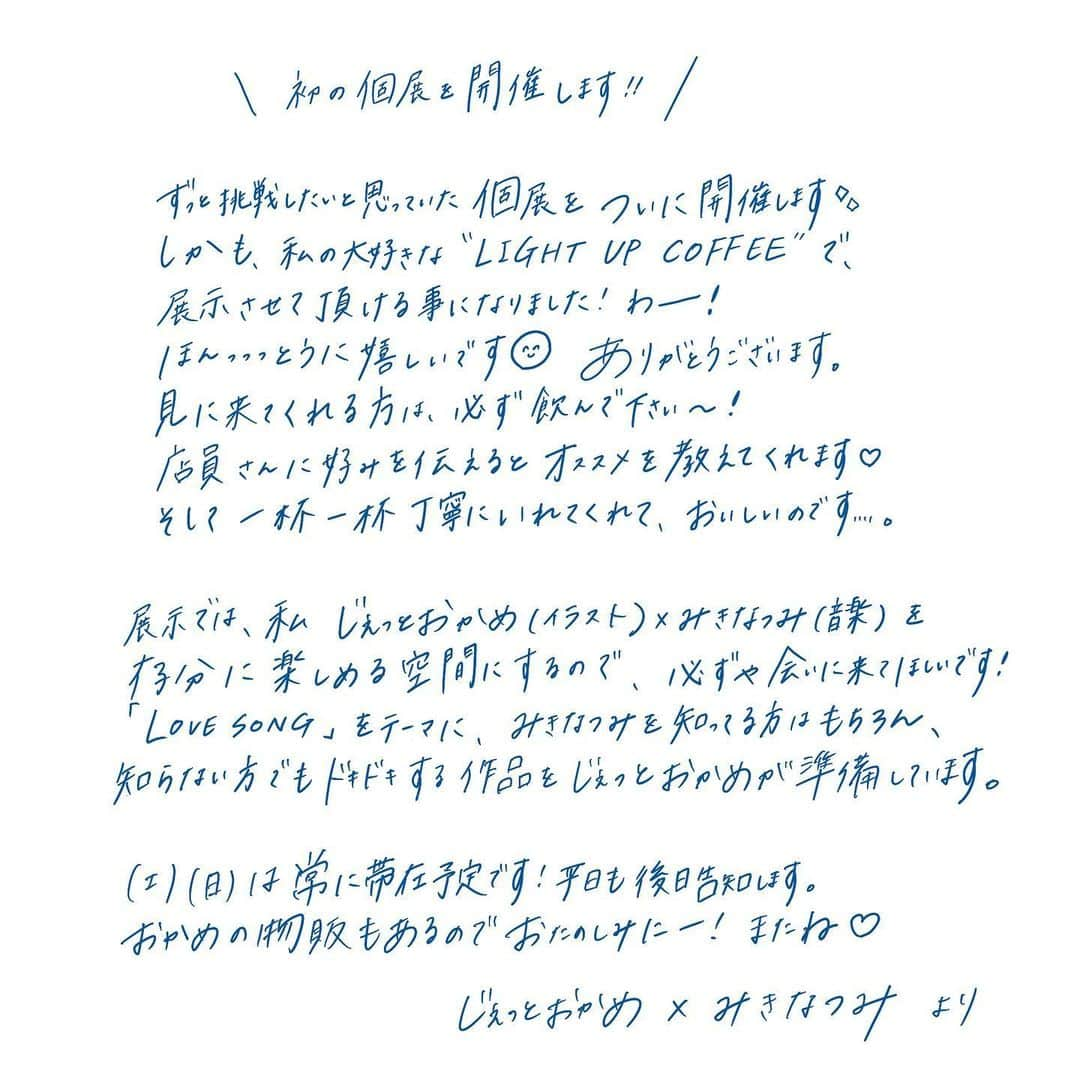 \ 初の個展を開催します!! /
ずっと挑戦したいと思っていた 個展を ついに開催します
しかも、私の大好きな "LIGHT UP COFFEE" で、
展示させて頂ける事になりました! わー!
ほんっっっとうに嬉しいです😊 ありがとうございます。
見に来てくれる方は、必ず飲んで下さい〜!
店員さんに好みを伝えると オススメを教えてくれます♡
そして 一杯一杯丁寧にいれてくれて、おいしいのです....。
展示では、私 じぇっとおかめ(イラスト)×みきなつみ(音楽)を
存分に楽しめる空間にするので、必ずや会いに来てほしいです!
「LOVE SONG」をテーマに、みきなつみを知ってる方はもちろん、
知らない方でもドキドキする作品をじぇっとおかめが準備しています。
(土)(日)は常に帯在予定です! 平日も後日告知します。
おかめの物販もあるのでおたのしみにー! またね♡
じぇっとおかめ × みきなつみ より